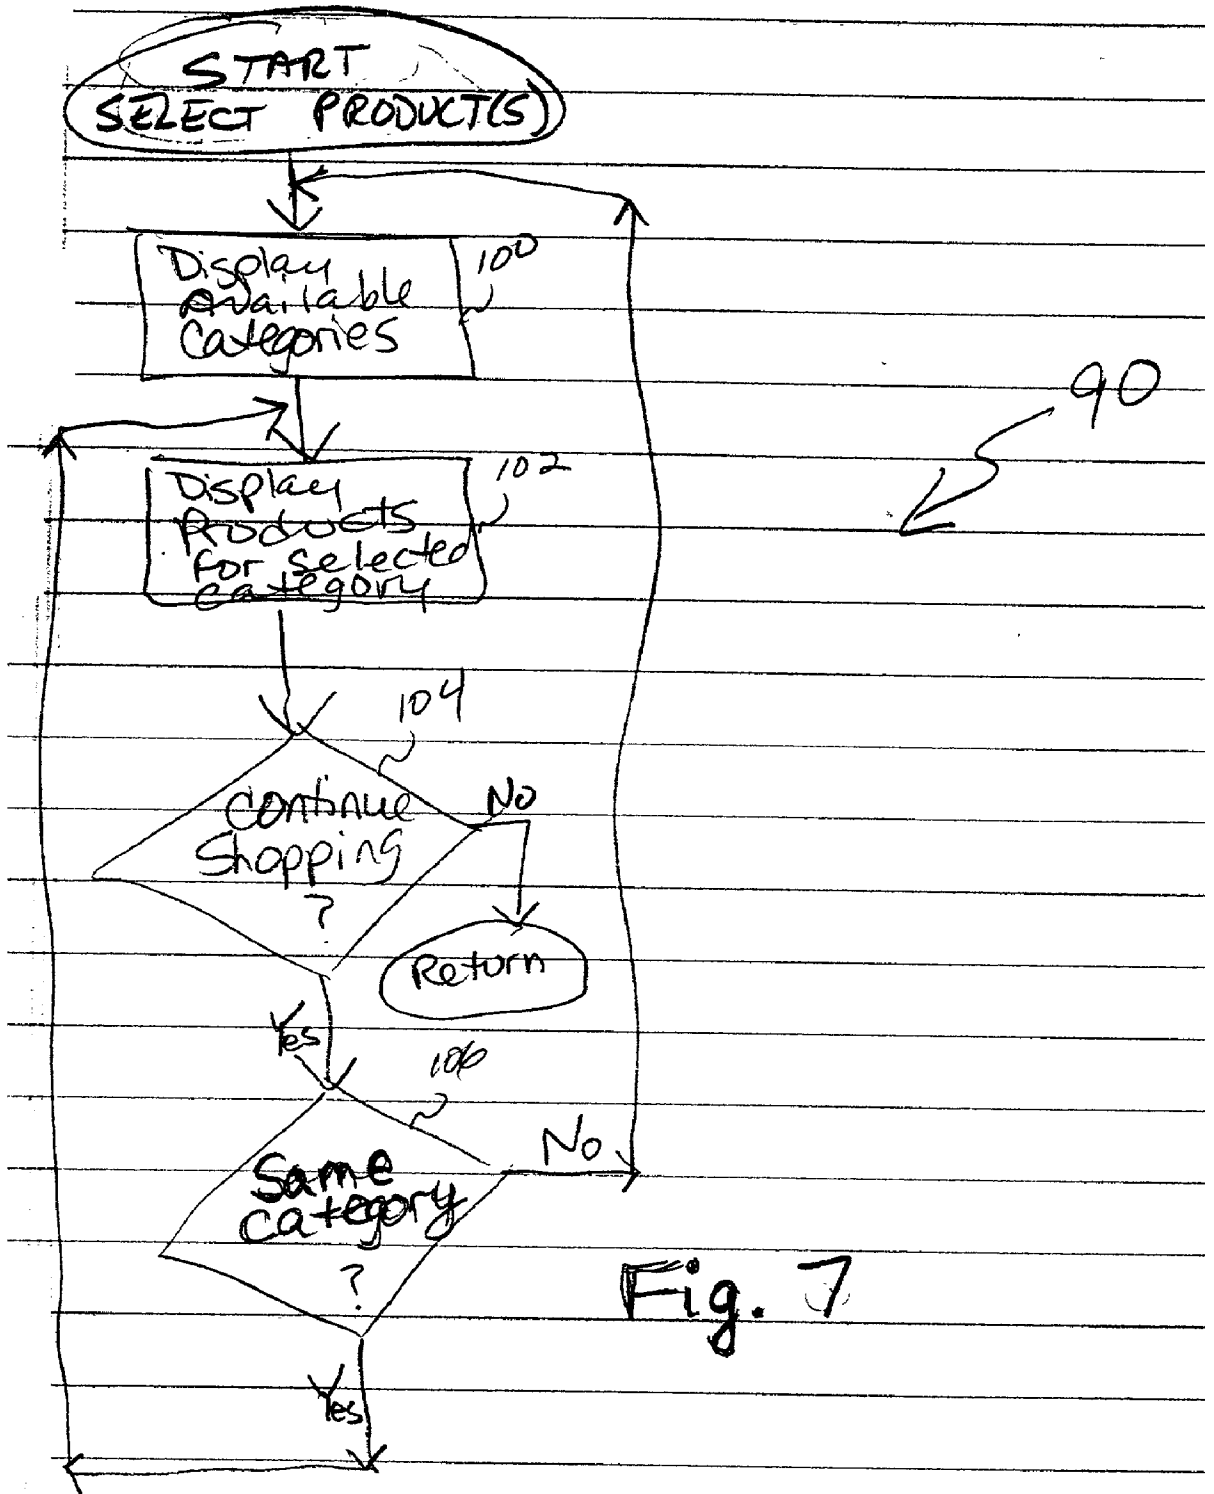 START
SELECT PRODUCT(S)
Display
Available
Categories
100
90
Display
Products
for selected
category
102
104
Continue
Shopping
?
No
Return
Yes
106
Same
category
?
No
Fig. 7
Yes